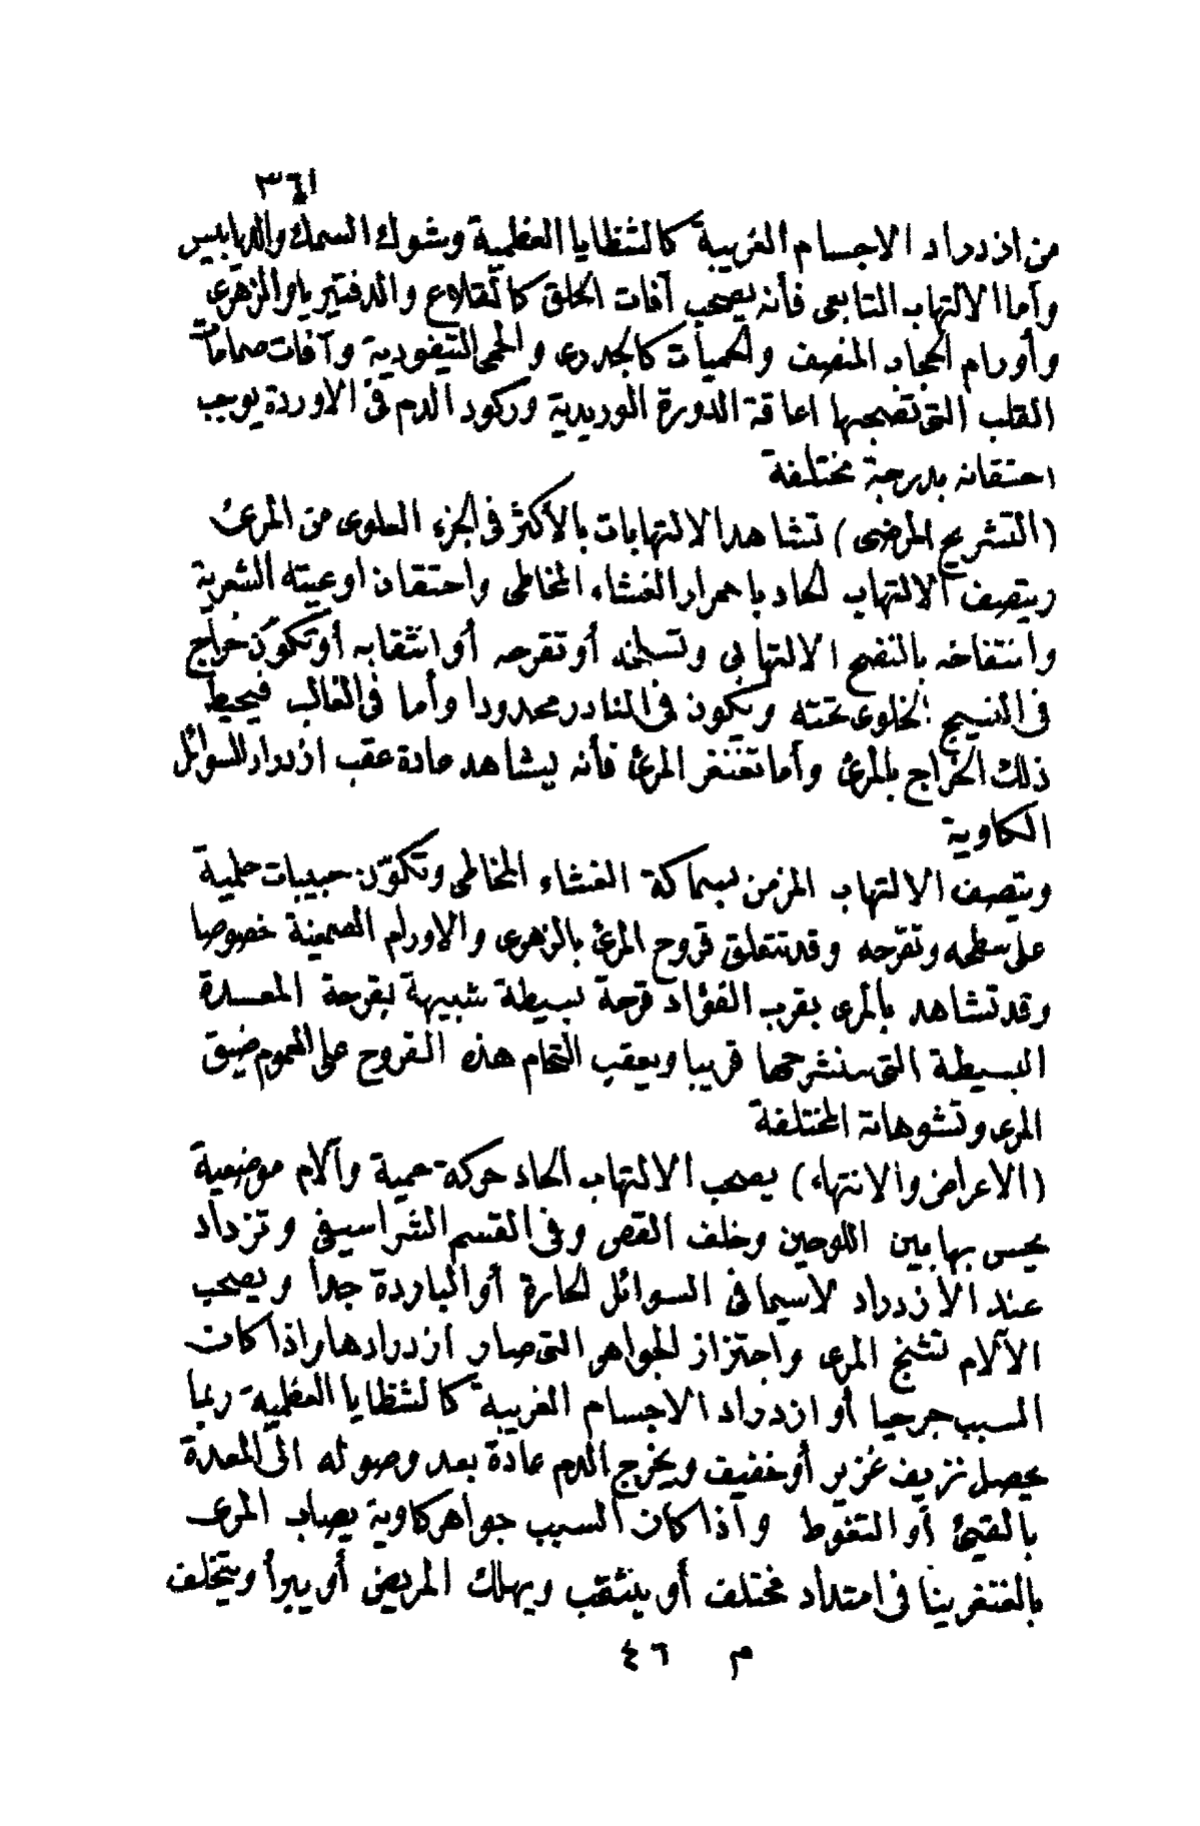 ٣٦١
من ازدراد الاجسام الغريبة كالشظايا العظمية وشوك السمك والدبابيس
وأما الالتهاب التابعى فأنه يصحب آفات الحلق كالقلاع والدفتيريا والزهرى
وأورام الحجاب المنصف والحميات كالجدرى والحمى التيفودية وآفات صمامات
القلب التى تصحبها اعاقة الدورة الوريدية وركود الدم فى الاوردة يوجب
احتقانه بدرجة مختلفة
(التشريح المرضى) تشاهد الالتهابات بالأكثر فى الجزء العلوى من المرئ
ويتصف الالتهاب الحاد باحمرار الغشاء المخاطى واحتقان اوعيته الشعرية
وانتفاخه بالنضح الالتهابى وتسلخه أو تقرحه أو انثقابه أو تكون خراج
فى النسيج الخلوى تحته ويكون فى النادر محدودا وأما فى الغالب فيحيط
ذلك الخراج بالمرئ وأما تغنغر المرئ فأنه يشاهد عادة عقب ازدراد السوائل
الكاوية
ويتصف الالتهاب المزمن بسماكة الغشاء المخاطى وتكوّن حبيبات حلمية
على سطحه وتقرحه وقد تتعلق قروح المرئ بالزهرى والاورام الصمغية خصوصا
وقد تشاهد بالمرى بقرب الفؤاد قرحة بسيطة شبيهة بقرحة المعدة
البسيطة التى سنشرحها قريبا ويعقب التحام هذه القروح على العموم ضيق
المرى وتشوهاته المختلفة
(الاعراض والانتهاء) يصحب الالتهاب الحاد حركة حمية وآلام موضعية
يحس بها بين اللوحين وخلف القص وفى القسم الشراسيفى وتزداد
عند الازدراد لاسيما فى السوائل الحارة أو الباردة جدا ويصحب
الآلام تشنج المرى واجتزاز الجواهر التى صار ازدرادها واذا كان
السبب جرحيا أو ازدراد الاجسام الغريبة كالشظايا العظمية ربما
يحصل نزيف غزير أو خفيف ويخرج الدم عادة بعد وصوله الى المعدة
بالقيئ أو التغوط واذا كان السبب جواهر كاوية يصاب المرى
بالغنغرينا فى امتداد مختلف أو ينثقب ويهلك المريض أو يبرأ ويتخلف
م ٤٦